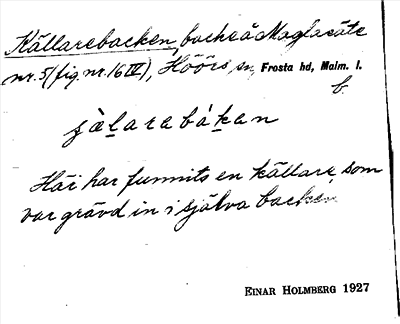 Källarebacken, backe å Maglasäte
nr. 5 (fig. nr. 16 IV), Höörs sn, Frosta hd, Malm. l.
b.
Här har funnits en källare, som
var grävd in i själva backen.
EINAR HOLMBERG 1927